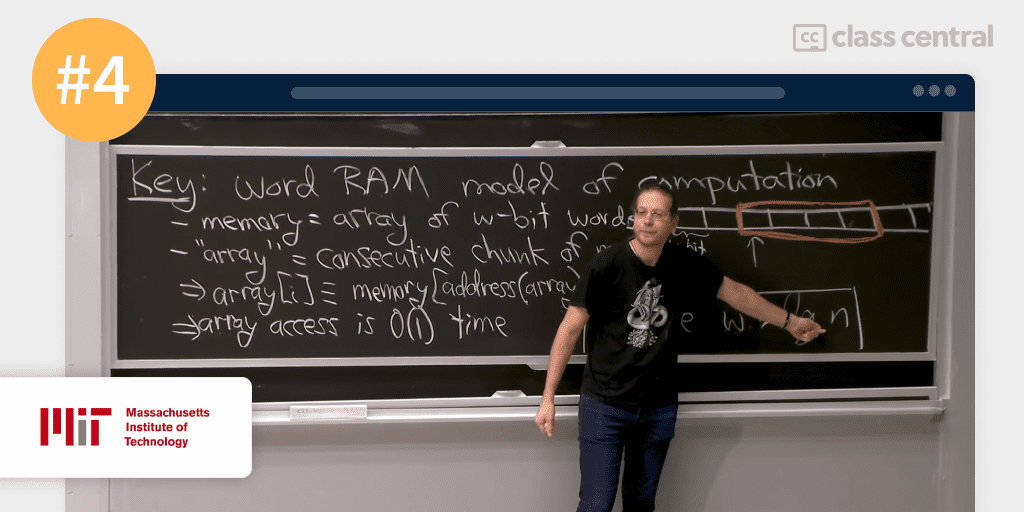 #4
class central
Key: word RAM model of computation
- memory = array of w-bit words
- "array" = consecutive chunk of bit
⇒ array[i] ≡ memory[address(array)
⇒ array access is O(1) time
w ≥ lg n
MIT
Massachusetts
Institute of
Technology